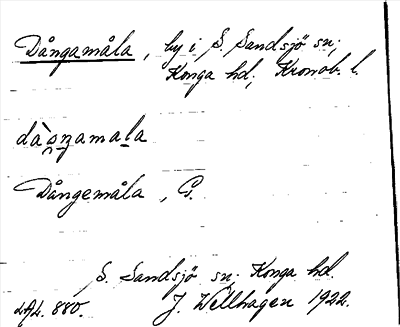 Dångamåla, by i S. Sandsjö sn;
Konga hd; Kronob. l.
Dångemåla, G.
S. Sandsjö sn; Konga hd.
LAL. 880. J. Wellhagen 1922.